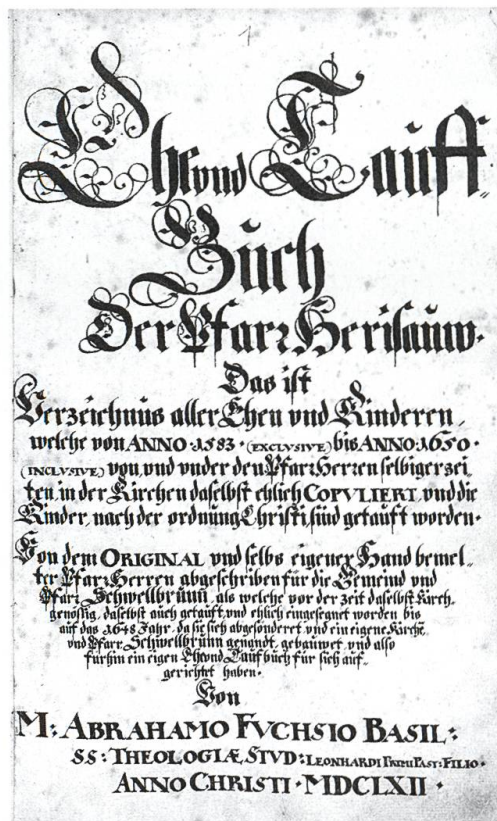 1
Ehe vnd Tauff-
Buch
Der Pfarr Herisauw.
Das ist
Verzeichnus aller Ehen vnd Kinderen,
welche von ANNO 1583. (EXCLVSIVE) bis ANNO: 1650.
(INCLVSIVE) von, vnd vnder den Pfarr Herren selbiger zei,
ten, in der Kirchen daselbst ehlich COPVLIERT, vnd die
Kinder, nach der ordnung Christi, sind getaufft worden.
Von dem ORIGINAL vnd selbs eigener Hand bemel-
ter Pfarr Herren abgeschriben für die Gemeind vnd
Pfarr Schwellbrunn, als welche vor der zeit daselbst Kirch-
genössig, daselbst auch getaufft, vnd ehlich eingesegnet worden bis
auf das 1648 Jahr, da sie sich abgesönderet, vnd ein eigene Kirche,
vnd Pfarr, Schwellbrunn genandt, gebauwet, vnd also
fürhin ein eigen Ehe vnd Taufbuch für sich auf-
gerichtet haben.
Von
M: ABRAHAMO FVCHSIO BASIL:
SS: THEOLOGIÆ STVD: LEONHARDI PRIMI PAST: FILIO.
ANNO CHRISTI • MDCLXII •